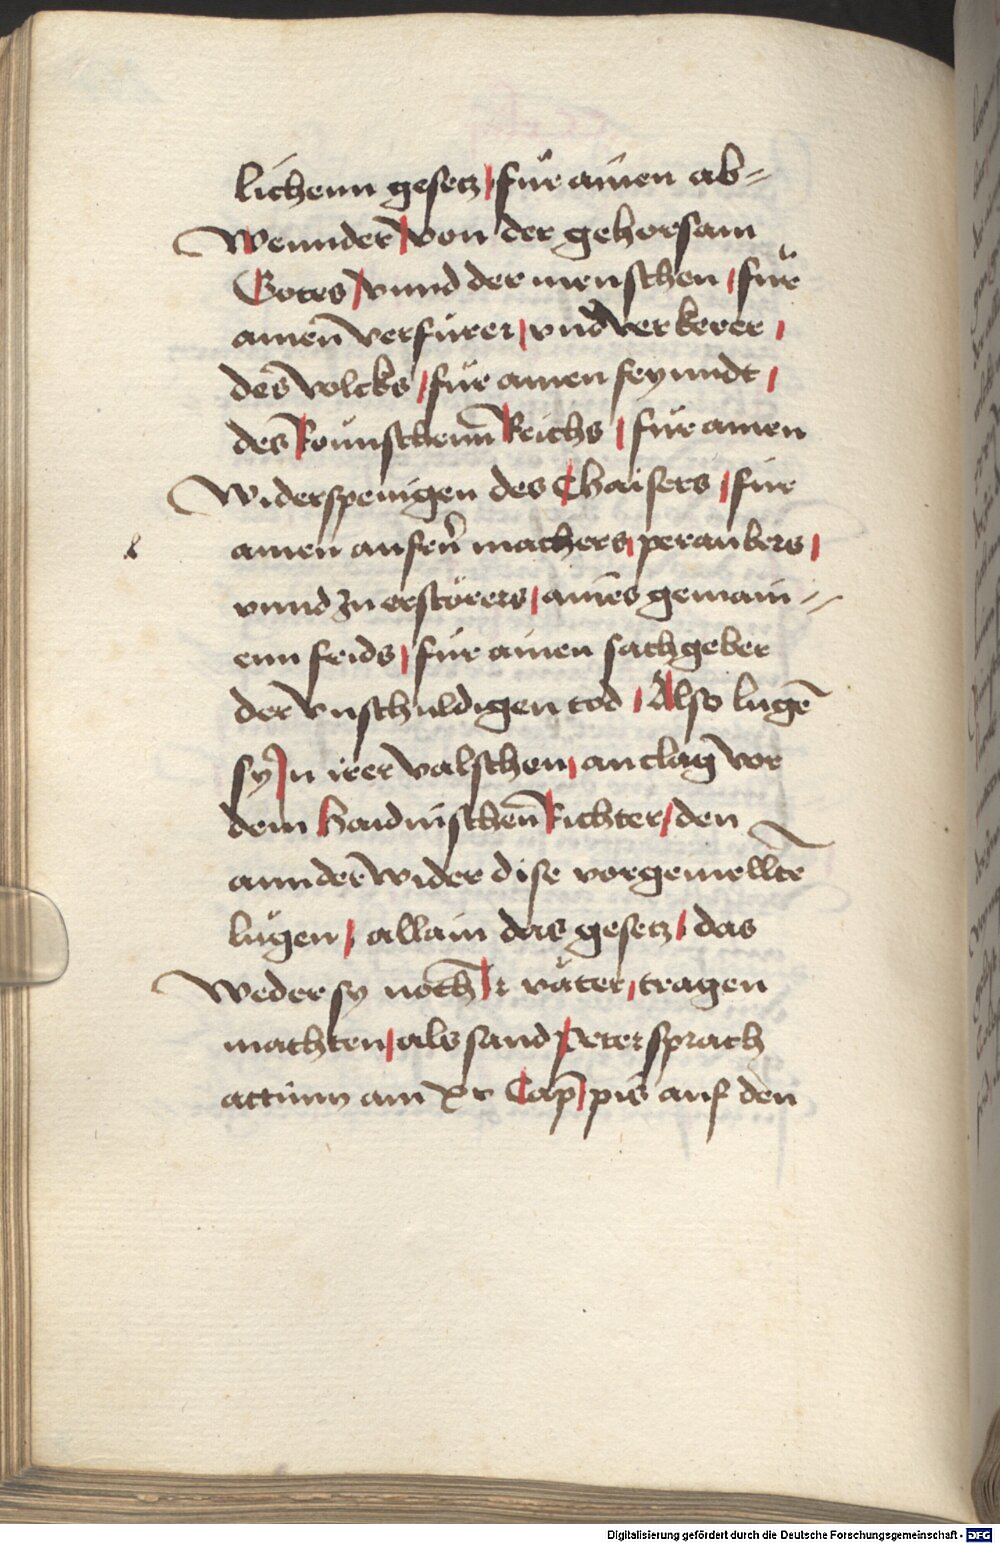 lichenn gesetz / für ainen ab=
wennder / von der gehorsam
Gotes / vnnd der menschen / für
ainen̄ verfürer / vnd verkerer /
des volcks / für ainen feynndt /
des Römischenn̄ Reichs / für ainen
widerspenigen des Chaisers / für
ainen aufrur̄ machers / peraubers /
vnnd zu erstörers / aines gemain=
enn frids / für ainen sachgeber
der vnschuldigen tod / Also lugen̄
sy In irer valschen / anclag vor
dem Haidnischen̄ Richter / den
annder wider dise vorgemellte
lügen / allain das gesetz / das
weder sy noch Ir väter / tragen
machten / als sand Peter sprach
actuum am xv Cap̄ / pis auf den
Digitalisierung gefördert durch die Deutsche Forschungsgemeinschaft - DFG